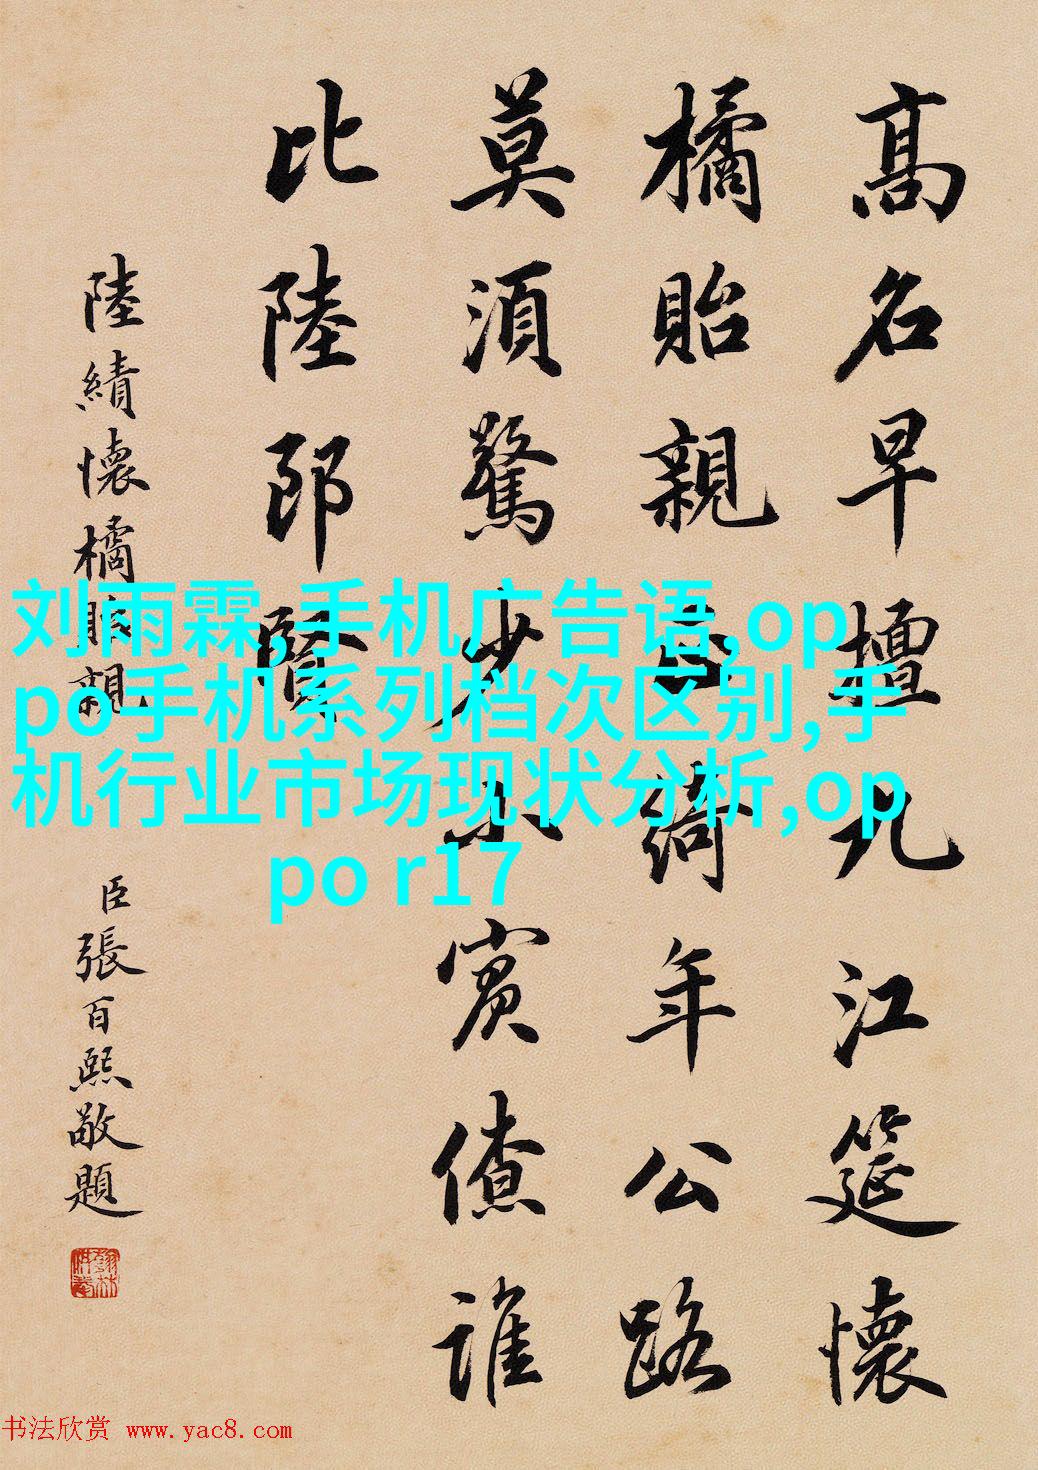 高名早擅九江筵懷
橘貽親綺年公路
莫須驚少小賓僚誰
比陸郎賢
陸績懷橘貽親
臣張百熙敬題
刘雨霖,手机广告语,op
po手机系列档次区别,手
机行业市场现状分析,op
po r17
书法欣赏 www.yac8.com